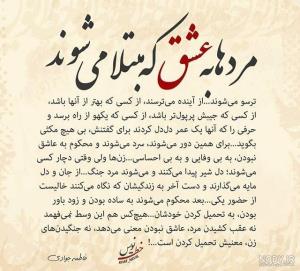 مردها به عشق که مبتلا می شوند
ترسو می‌شوند...از آینده می‌ترسند، از کسی که بهتر از آنها باشد،
از کسی که جیبش پرپول‌تر باشد، از کسی که یکهو از راه برسد و
حرفی را که آنها یک عمر دل‌دل کردند برای گفتنش، بی هیچ مکثی
بگوید...برای همین دور می‌شوند، سرد می‌شوند و محکوم به عاشق
نبودن، به بی وفایی و به بی احساسی...زن‌ها ولی وقتی دچار کسی
می‌شوند؛ دل شیر پیدا می‌کنند و می‌شوند مرد جنگ...از جان و دل
مایه می‌گذارند و دست آخر به زندگیشان که نگاه می‌کنند خالیست
از حضور یکی...بعد محکوم می‌شوند به ساده بودن و زود باور
بودن، به تحمیل کردن خودشان...هیچ‌کس هم این وسط نمی‌فهمد
نه عقب کشیدن مرد، عاشق نبودن معنی می‌دهد، نه جنگیدن‌های
زن، معنیش تحمیل کردن است...!
فاطمه جوادی